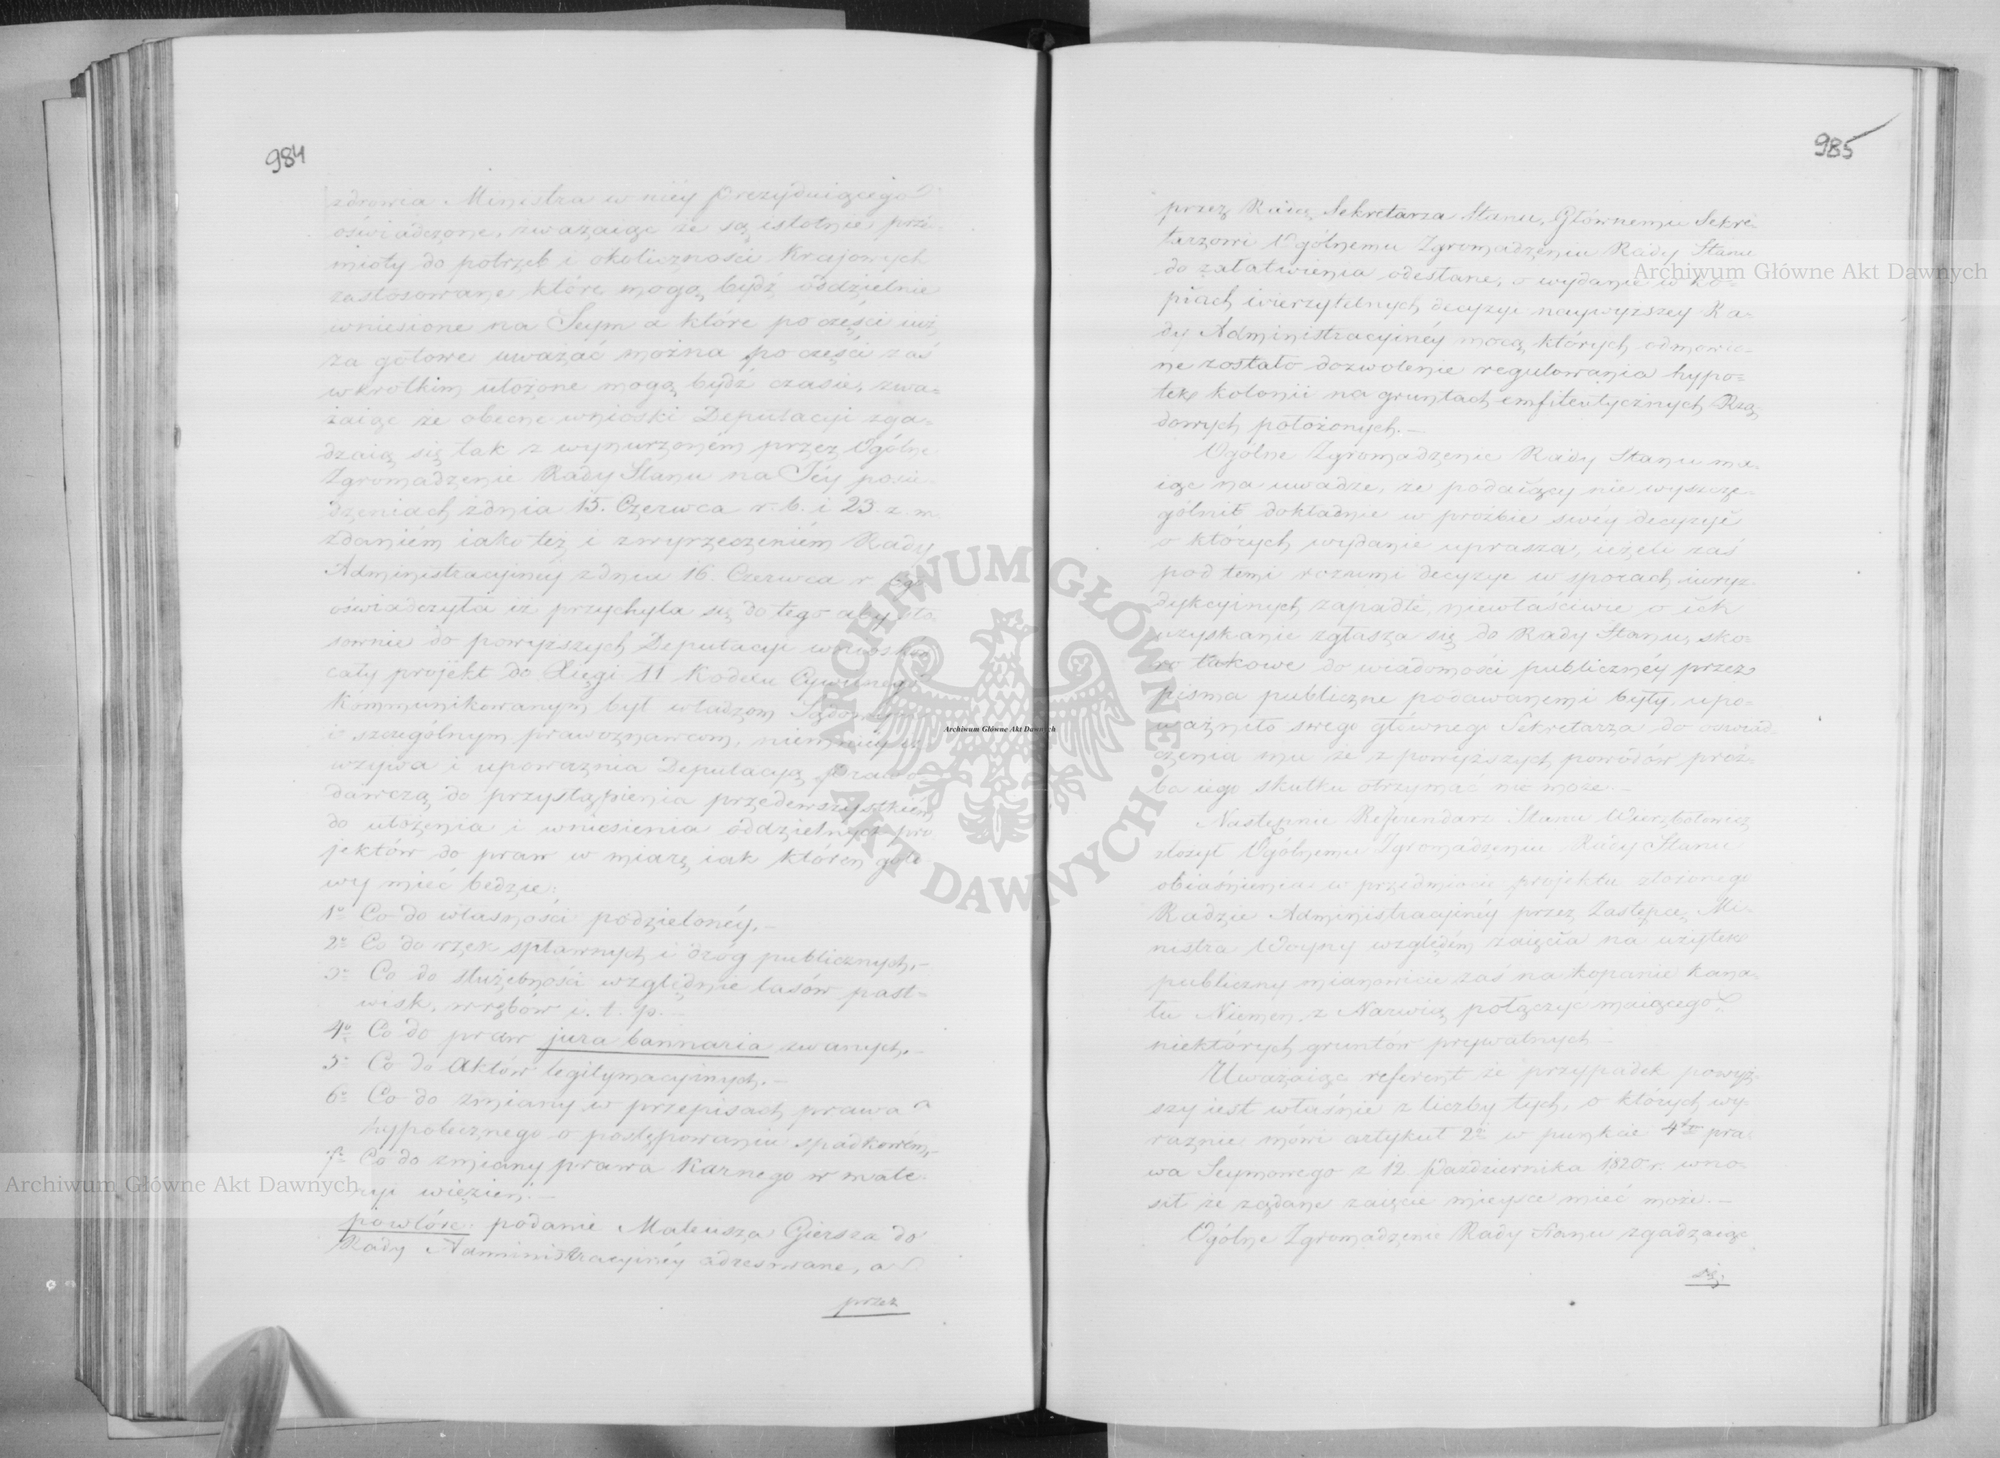 984
zdrowia Ministra w niéy prezyduiącego
oświadczone, zważaiąc że są istotnie prze-
mioty do potrzeb i okoliczności Kraiowych
zastosowane, które mogą bydź oddzielnie
wniesione na Seym a które po części iuż
za gotowe uważać można po części zaś
w krótkim ułożone mogą bydź czasie, zwa-
żaiąc że obecne wnioski Deputacyi zga-
dzaią się tak z wynurzoném przez Ogólne
Zgromadzenie Rady Stanu na Jéy posie-
dzeniach z dnia 15. Czerwca r. b. i 23. z. m.
zdaniém iako też i z wyrzeczeniém Rady
Administracyinéy z dnia 16. Czerwca r. tego
oświadczyła iż przychyla się do tego aby sto-
sownie do powyższych Deputacyi wniosków
cały projekt do Xięgi II Kodexu Cywilnego
Kommunikowanym był władzom Sądowym
i szczególnym prawoznawcom, niemniéy iż
wzywa i upoważnia Deputacyą Prawo-
dawczą do przystąpienia przedewszystkiém
do ułożenia i wniesienia oddzielnych pro-
jektów do praw w miarę iak któren goto-
wy mieć będzie:
1o Co do własności podzielonéy.–
2o Co do rzek spławnych i dróg publicznych.–
3o Co do służebności względnie lasów past-
wisk, wrębów i. t. p.–
4o Co do praw jura bannaria zwanych.–
5o Co do Aktów legitymacyinych.–
6o Co do zmiany w przepisach prawa
hypotecznego o postępowaniu spadkowém.–
7o Co do zmiany prawa Karnego w mate-
ryi więzień.–
powtóre: podanie Mateusza Giersza do
Rady Administracyinéy adresowane, a
przez
985
przez Radcę Sekretarza Stanu, Głównemu Sekre-
tarzowi Ogólnemu Zgromadzeniu Rady Stanu
do załatwienia odesłane, o wydanie w ko-
piach wierzytelnych decyzyi naywyższey Ra-
dy Administracyinéy mocą których odmówio-
ne zostało dozwolenie regulowania hypo-
tek kolonii na gruntach emfiteutycznych Rzą-
dowych położonych.–
Ogólne Zgromadzenie Rady Stanu ma-
iąc na uwadze, że podaiący nie wyszcze-
gólnił dokładnie w prozbie swéy decyzyi
o których wydanie uprasza, ieżeli zaś
pod temi rozumi decyzye w sporach iurys-
dykcyinych zapadłe, niewłaściwie o ich
uzyskanie zgłasza się do Rady Stanu, sko-
ro takowe do wiadomości publicznéy przez
pisma publiczne podawanemi były, upo-
ważniło swego głównego Sekretarza do oświad-
czenia mu że z powyższych powodów proź-
ba iego skutku otrzymać nie może.–
Następnie Referendarz Stanu Wierzbołowicz
złożył Ogólnemu Zgromadzeniu Rady Stanu
obiaśnienia w przedmiocie projektu złożonego
Radzie Administracyinéy przez Zastępcę Mi-
nistra Woyny względem zaięcia na użytek
publiczny mianowicie zaś na kopanie kana-
łu Niemen z Narwią połączyć maiącego
niektórych gruntów prywatnych–
Uważaiąc referent że przypadek powyż-
szy iest właśnie z liczby tych, o których wy-
raźnie mówi artykuł 2gi w punkcie 4tym pra-
wa Seymowego z 12 Października 1820 r. wno-
sił że żądane zaięcie mieysce mieć może.–
Ogólne Zgromadzenie Rady Stanu zgadzaiąc
się
Archiwum Główne Akt Dawnych
Archiwum Główne Akt Dawnych
Archiwum Główne Akt Dawnych
ARCHIWUM GŁÓWNE AKT DAWNYCH